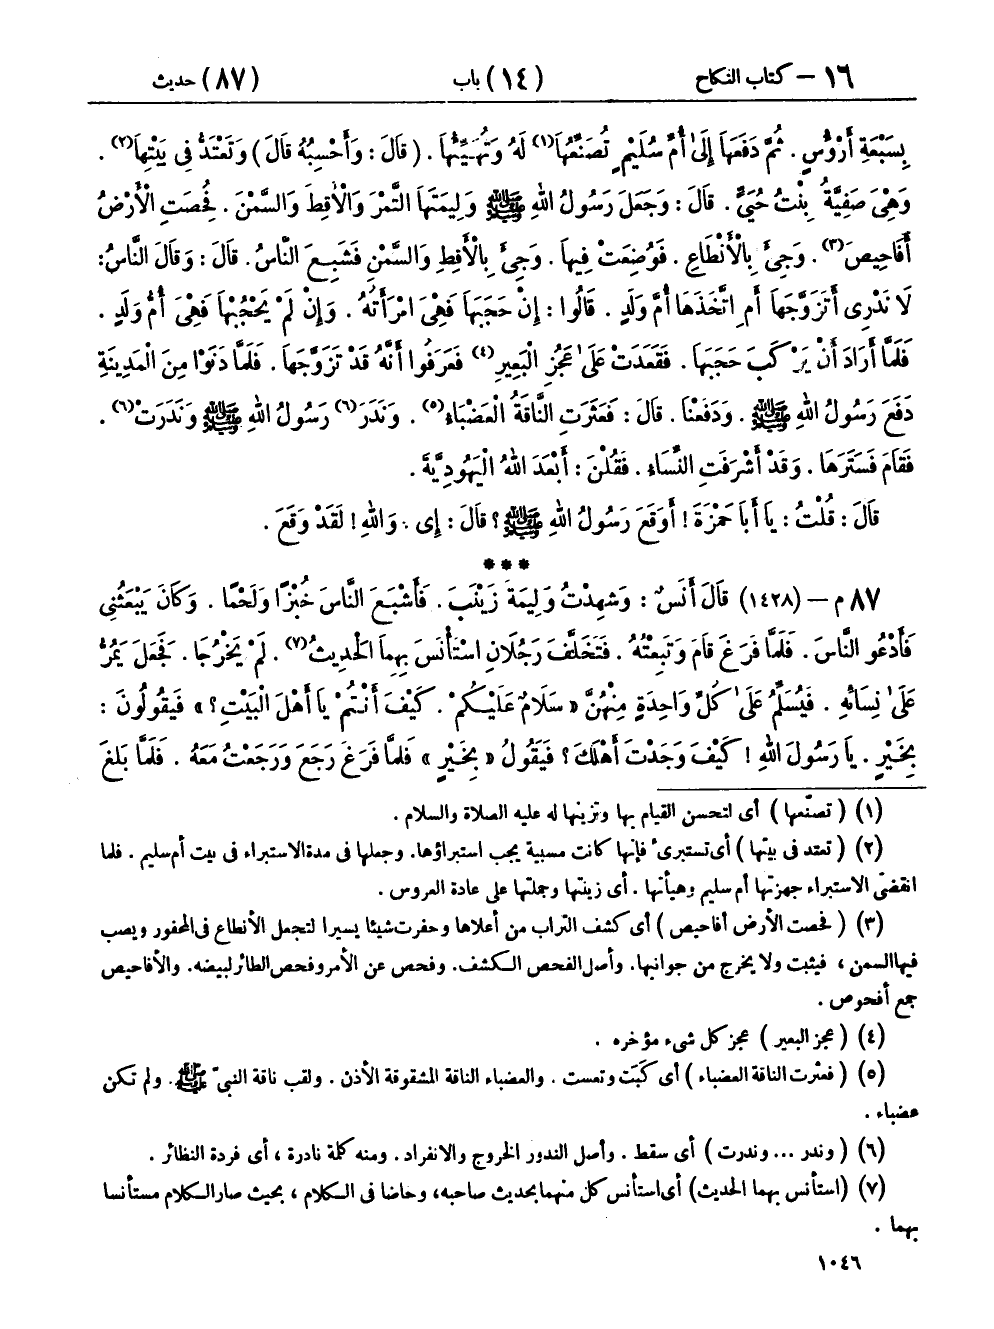 ١٦ – كتاب النكاح (١٤) باب (٨٧) حديث
بِسَبْعَةِ أَرْؤُسٍ . ثُمَّ دَفَعَهَا إِلَىٰ أُمِّ سُلَيْمٍ تُصَنِّعُهَا(١) لَهُ وَتُهَيِّئُهَا . ( قَالَ : وَأَحْسِبُهُ قَالَ ) وَتَعْتَدُّ فِي بَيْتِهَا(٢) .
وَهْيَ صَفِيَّةُ بِنْتُ حُيَيٍّ . قَالَ : وَجَعَلَ رَسُولُ اللهِ ﷺ وَلِيمَتَهَا التَّمْرَ وَالْأَقِطَ وَالسَّمْنَ . فُحِصَتِ الْأَرْضُ
أَفَاحِيصَ(٣) . وَجِيءَ بِالْأَنْطَاعِ . فَوُضِعَتْ فِيهَا . وَجِيءَ بِالْأَقِطِ وَالسَّمْنِ فَشَبِعَ النَّاسُ . قَالَ : وَقَالَ النَّاسُ :
لَا نَدْرِي أَتَزَوَّجَهَا أَمِ اتَّخَذَهَا أُمَّ وَلَدٍ . قَالُوا : إِنْ حَجَبَهَا فَهْيَ امْرَأَتُهُ . وَإِنْ لَمْ يَحْجُبْهَا فَهْيَ أُمُّ وَلَدٍ .
فَلَمَّا أَرَادَ أَنْ يَرْكَبَ حَجَبَهَا . فَقَعَدَتْ عَلَىٰ عَجُزِ الْبَعِيرِ(٤) فَعَرَفُوا أَنَّهُ قَدْ تَزَوَّجَهَا . فَلَمَّا دَنَوْا مِنَ الْمَدِينَةِ
دَفَعَ رَسُولُ اللهِ ﷺ . وَدَفَعْنَا . قَالَ : فَعَثَرَتِ النَّاقَةُ الْعَضْبَاءُ(٥) . وَنَدَرَ(٦) رَسُولُ اللهِ ﷺ وَنَدَرَتْ(٦) .
فَقَامَ فَسَتَرَهَا . وَقَدْ أَشْرَفَتِ النِّسَاءُ . فَقُلْنَ : أَبْعَدَ اللهُ الْيَهُودِيَّةَ .
قَالَ : قُلْتُ : يَا أَبَا حَمْزَةَ ! أَوَقَعَ رَسُولُ اللهِ ﷺ ؟ قَالَ : إِي . وَاللهِ ! لَقَدْ وَقَعَ .
***
٨٧ م – (١٤٢٨) قَالَ أَنَسٌ : وَشَهِدْتُ وَلِيمَةَ زَيْنَبَ . فَأَشْبَعَ النَّاسَ خُبْزًا وَلَحْمًا . وَكَانَ يَبْعَثُنِي
فَأَدْعُو النَّاسَ . فَلَمَّا فَرَغَ قَامَ وَتَبِعْتُهُ . فَتَخَلَّفَ رَجُلَانِ اسْتَأْنَسَ بِهِمَا الْحَدِيثُ(٧) . لَمْ يَخْرُجَا . فَجَعَلَ يَمُرُّ
عَلَىٰ نِسَائِهِ . فَيُسَلِّمُ عَلَىٰ كُلِّ وَاحِدَةٍ مِنْهُنَّ « سَلَامٌ عَلَيْكُمْ . كَيْفَ أَنْتُمْ يَا أَهْلَ الْبَيْتِ ؟ » فَيَقُولُونَ :
بِخَيْرٍ . يَا رَسُولَ اللهِ ! كَيْفَ وَجَدْتَ أَهْلَكَ ؟ فَيَقُولُ « بِخَيْرٍ » فَلَمَّا فَرَغَ رَجَعَ وَرَجَعْتُ مَعَهُ . فَلَمَّا بَلَغَ
(١) ( تصنّعها ) أى لتحسن القيام بها وتزينها له عليه الصلاة والسلام .
(٢) ( تعتد فى بيتها ) أى تستبرئ فإنها كانت مسبية يجب استبراؤها . وجعلها فى مدة الاستبراء فى بيت أم سليم . فلما
انقضى الاستبراء جهزتها أم سليم وهيأتها . أى زينتها وجملتها على عادة العروس .
(٣) ( فحصت الأرض أفاحيص ) أى كشف التراب من أعلاها وحفرت شيئا يسيرا لتجعل الأنطاع فى المحفور ويصب
فيها السمن ، فيثبت ولا يخرج من جوانبها . وأصل الفحص الكشف . وفحص عن الأمر وفحص الطائر لبيضه . والأفاحيص
جمع أفحوص .
(٤) ( عجز البعير ) عجز كل شىء مؤخره .
(٥) ( فعثرت الناقة العضباء ) أى كبَت وتعست . والعضباء الناقة المشقوقة الأذن . ولقب ناقة النبيّ ﷺ . ولم تكن
عضباء .
(٦) ( وندر ... وندرت ) أى سقط . وأصل الندور الخروج والانفراد . ومنه كلمة نادرة ، أى فردة النظائر .
(٧) (استأنس بهما الحديث) أى استأنس كل منهما بحديث صاحبه، وخاضا فى الكلام ، بحيث صار الكلام مستأنسا
بهما .
١٠٤٦